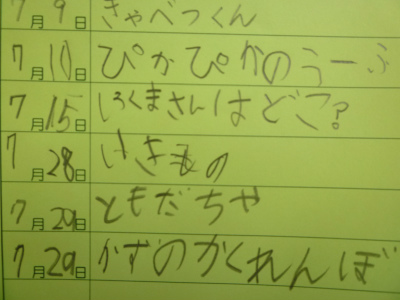 7月9日 きゃべつくん
7月10日 ぴかぴかのうーふ
7月15日 しろくまさんはどこ?
7月28日 いきもの
7月29日 ともだちや
7月29日 かずのかくれんぼ